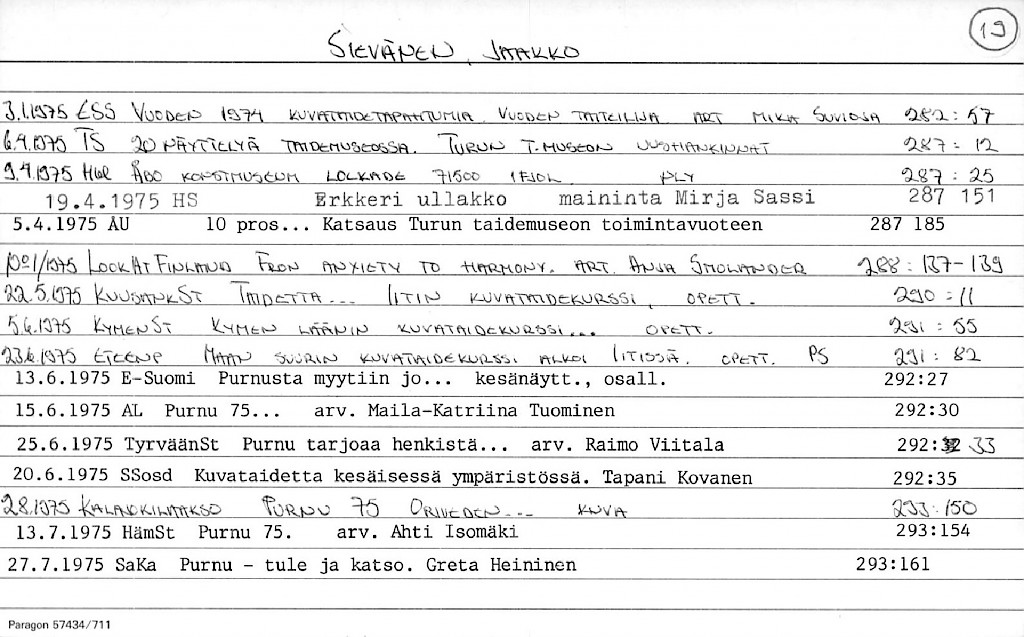 19
SIEVÄNEN, JAAKKO
3.1.1975 ESS VUODEN 1974 KUVATAIDETAPAHTUMIA. VUODEN TAITEILIJA ART MIKA SUVIOJA 282:57
6.4.1975 TS 20 NÄYTTELYÄ TAIDEMUSEOSSA. TURUN T.MUSEON UUSHANKINNAT 287:12
9.4.1975 Hbl ÅBO KONSTMUSEUM LOCKADE 71500 IFJOL PLY 287:25
19.4.1975 HS Erkkeri ullakko maininta Mirja Sassi 287 151
5.4.1975 AU 10 pros... Katsaus Turun taidemuseon toimintavuoteen 287 185
No 1/1975 LOOK AT FINLAND FROM ANXIETY TO HARMONY. ART. ANJA SMOLANDER 288:137-139
22.5.1975 KUUSANKST TAIDETTA... IITIN KUVATAIDEKURSSI, OPETT. 290:11
5.6.1975 KYMENST KYMEN LÄÄNIN KUVATAIDEKURSSI... OPETT. 291:55
23.6.1975 ETEENP MAAN SUURIN KUVATAIDEKURSSI ALKOI IITISSÄ. OPETT. PS 291:82
13.6.1975 E-Suomi Purnusta myytiin jo... kesänäytt., osall. 292:27
15.6.1975 AL Purnu 75... arv. Maila-Katriina Tuominen 292:30
25.6.1975 TyrväänSt Purnu tarjoaa henkistä... arv. Raimo Viitala 292:33
20.6.1975 SSosd Kuvataidetta kesäisessä ympäristössä. Tapani Kovanen 292:35
2.8.1975 KALAJOKILAAKSO PURNU 75 ORIVEDEN... KUVA 293:150
13.7.1975 HämSt Purnu 75. arv. Ahti Isomäki 293:154
27.7.1975 SaKa Purnu - tule ja katso. Greta Heininen 293:161
Paragon 57434/711